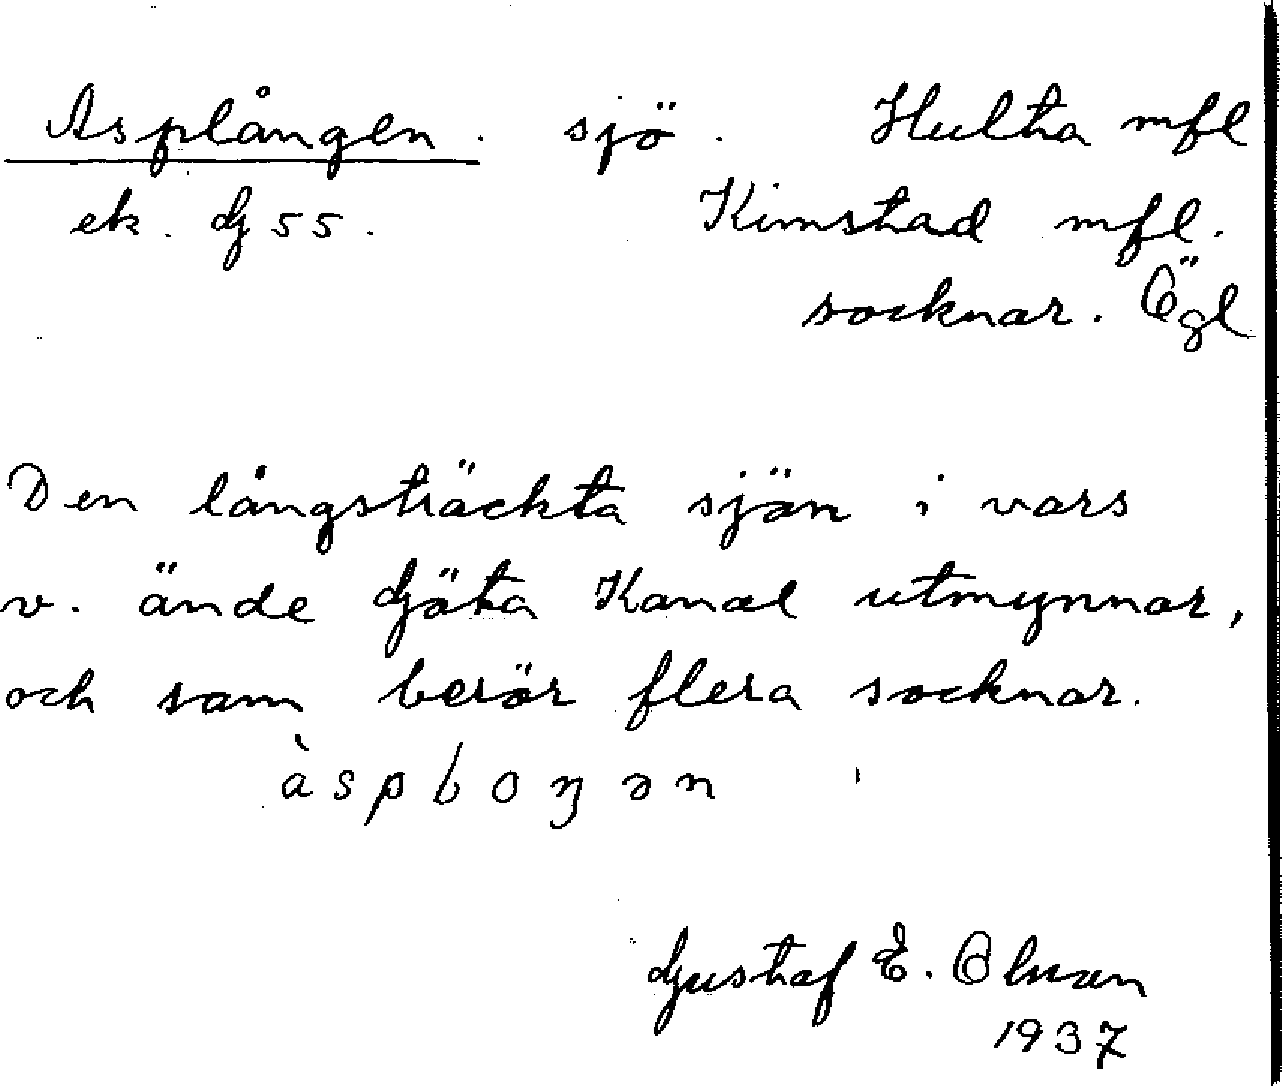 Asplången. sjö. Hulta mfl
ek. G 55. Kimstad mfl.
socknar. Ögl
Den långsträckta sjön i vars
v. ände Göta Kanal utmynnar,
och som berör flera socknar.
Gustaf E. Olsson
1937